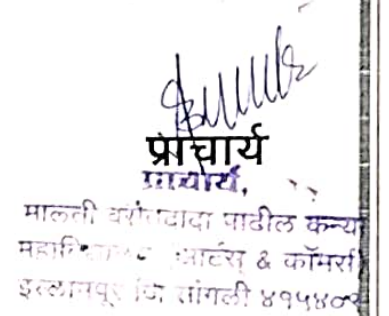 प्राचार्य
प्राचार्य,
मालती वसंतदादा पाटील कन्या
आर्टस् & कॉमर्स
इस्लामपूर जि सांगली ४१५४०९